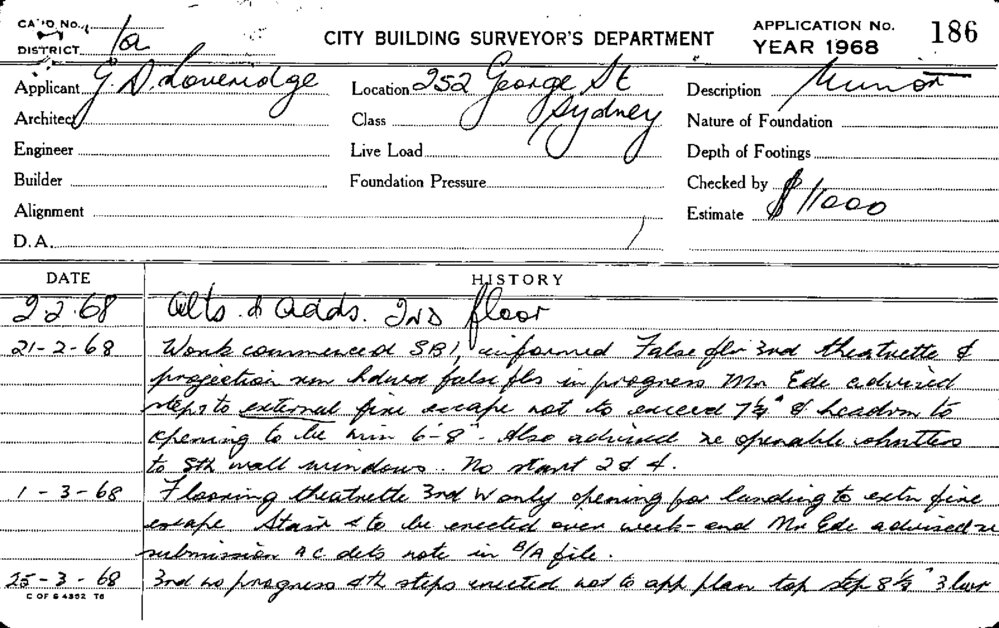 CARD No.
DISTRICT 1a
CITY BUILDING SURVEYOR'S DEPARTMENT
APPLICATION No. 186
YEAR 1968
Applicant G. D. Loveridge
Location 252 George St
Sydney
Description Minor
Architect
Class
Nature of Foundation
Engineer
Live Load
Depth of Footings
Builder
Foundation Pressure
Checked by
Alignment
Estimate $11000
D.A.
DATE HISTORY
2.2.68 Alts. & Adds. 2nd floor
21-2-68 Work commenced SB1, informed False flr 3rd theatrette &
projection rm false flrs in progress Mr Ede advised
steps to external fire escape not to exceed 7½" & headrm to
opening to be min 6'-8". Also advised re openable shutters
to Sth wall windows. No start 2 & 4.
1-3-68 Flooring theatrette 3rd W only opening for landing to extn fire
escape Stair to be erected over week-end Mr Ede advised re
submission A C dets note in B/A file.
25-3-68 3rd no progress 4th steps erected not to app plan top step 8½" 3 lwr
C OF S 4352 T6